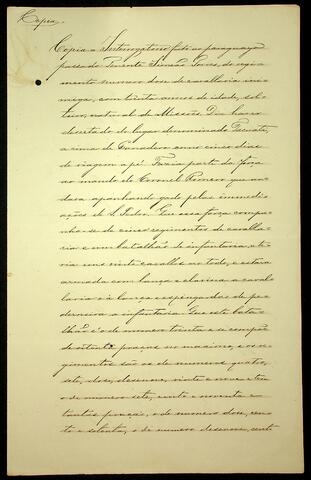 Copia.
Copia = Interrogatorio feito ao paraguayo
passado Tenente Simeão Peres, do regi
mento numero dose de cavallaria ini
miga, com trinta annos de idade, sol
teiro, natural de Missões. Diz haver
desertado do lugar denominado
acima de com cinco dias
de viagem a pé. Fazia parte da força
ao mando do Coronel Romero que an
dava apanhando gado pelas immedia
ções de S. Pedro. Que essa força compu
nha-se de cinco regimentos de cavalla
ria e um batalhão de infantaria, e te
ria uns vinte cavallos ao todo, e estava
armada com lança e clavina a caval
laria e á lança e espingardas de pe
derneira a infantaria. Que este bata
lhão é o de numero trinta e se compõe
de oitenta praças no maximo, e os re
gimentos são os de numeros quatro,
sete, dose, desenove, vinte e nove e ten
o de numero sete, cento e noventa e
tantas praças, o de numero dose, cen
to e setenta, o de numero desenove, cento